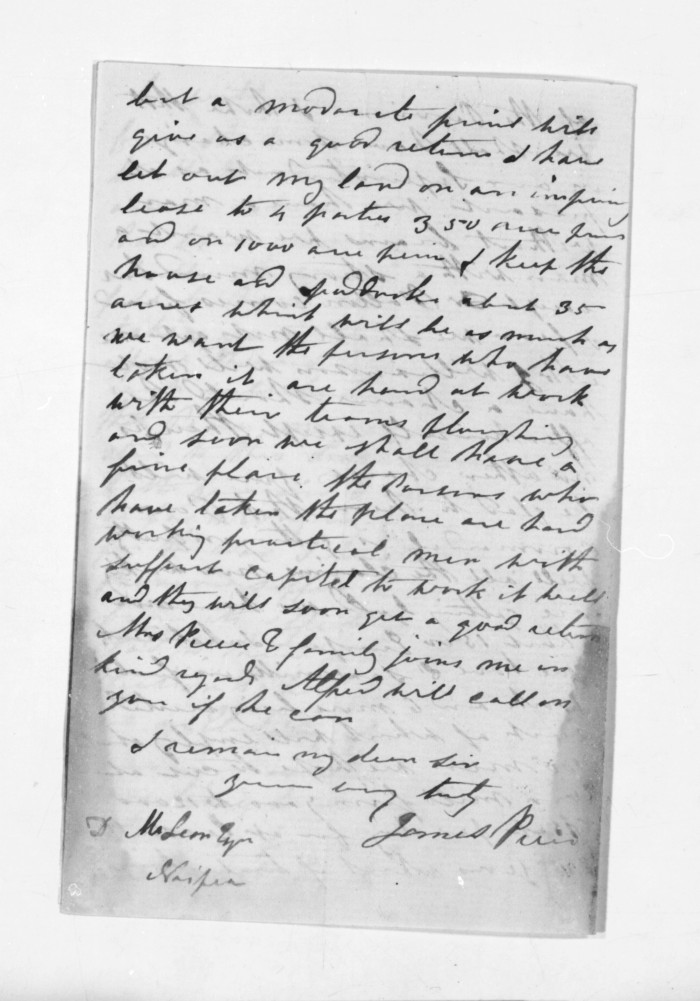 but a moderate price will
give us a good return I have
let out my land on an improving
lease to 4 parties 350 acre piece
and on 1000 acre piece I keep the
house and paddocks about 35
acres which will be as much as
we want the persons who have
taken it are hard at work
with their teams ploughing
and soon we shall have a
fine place. the Persons who
have taken the place are hard
working practical men with
suffict capital to work it well
and they will soon get a good return
Mrs & family joins me in
kind regards Alfred will call on
you if he can
I remain my dear sir
yours very truly
James
D McLean Esqr
Napier